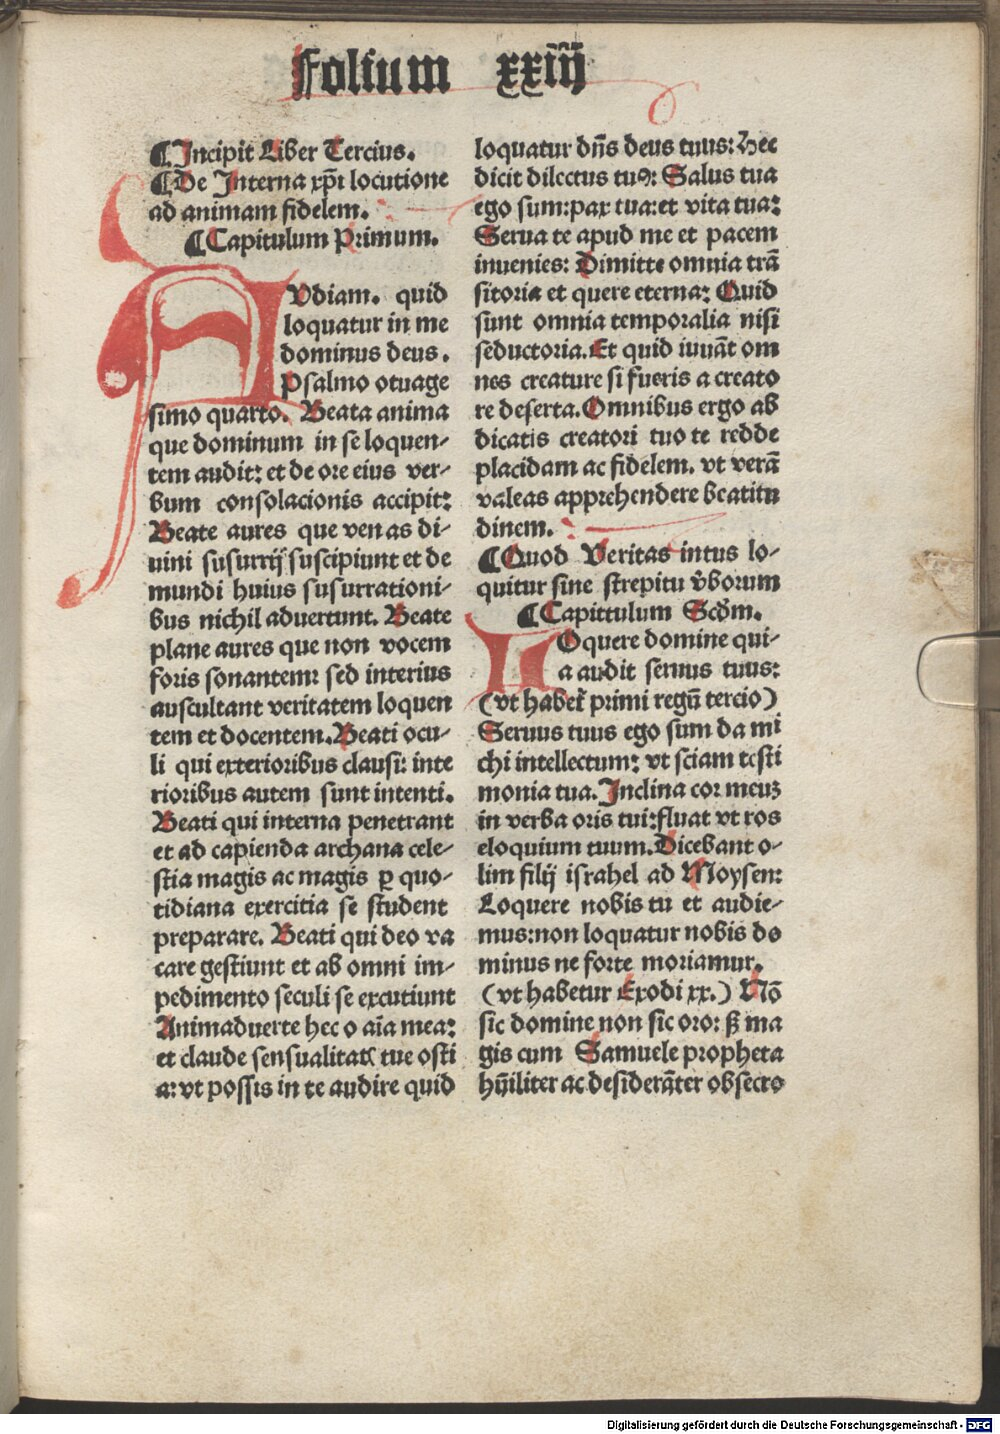 Folium xxiiij
¶Incipit Liber Tercius.
¶De Interna xp̄i locutione
ad animam fidelem.
¶Capitulum Primum.
AVdiam. quid
loquatur in me
dominus deus.
Psalmo octuage
simo quarto. Beata anima
que dominum in se loquen-
tem audit: et de ore eius ver-
bum consolacionis accipit:
Beate aures que venas di-
uini susurrij suscipiunt et de
mundi huius susurrationi-
bus nichil aduertunt. Beate
plane aures que non vocem
foris sonantem: sed interius
auscultant veritatem loquen
tem et docentem. Beati ocu-
li qui exterioribus clausi: inte
rioribus autem sunt intenti.
Beati qui interna penetrant
et ad capienda archana cele-
stia magis ac magis ꝑ quo-
tidiana exercitia se student
preparare. Beati qui deo va
care gestiunt et ab omni im-
pedimento seculi se excutiunt
Animaduerte hec o aīa mea:
et claude sensualitatꝭ tue osti
a: vt possis in te audire quid
loquatur dn̄s deus tuus: Hec
dicit dilectus tuꝰ: Salus tua
ego sum: pax tua: et vita tua:
Serua te apud me et pacem
inuenies: Dimitte omnia trā
sitoria et quere eterna: Quid
sunt omnia temporalia nisi
seductoria. Et quid iuuāt om
nes creature si fueris a creato
re deserta. Omnibus ergo ab
dicatis creatori tuo te redde
placidam ac fidelem. vt verā
valeas apprehendere beatitu
dinem.
¶Quod Veritas intus lo-
quitur sine strepitu v̄borum
¶Capittulum Scd̄m.
LOquere domine qui-
a audit seruus tuus:
(vt habet̄ primi regū tercio)
Seruus tuus ego sum da mi
chi intellectum: vt sciam testi
monia tua. Inclina cor meuꝫ
in verba oris tui: fluat vt ros
eloquium tuum. Dicebant o-
lim filij israhel ad Moysen:
Loquere nobis tu et audie-
mus: non loquatur nobis do
minus ne forte moriamur.
(vt habetur Exodi xx.) Nō
sic domine non sic oro: sꝫ ma
gis cum Samuele propheta
hūiliter ac desiderāter obsecro
Digitalisierung gefördert durch die Deutsche Forschungsgemeinschaft - DFG